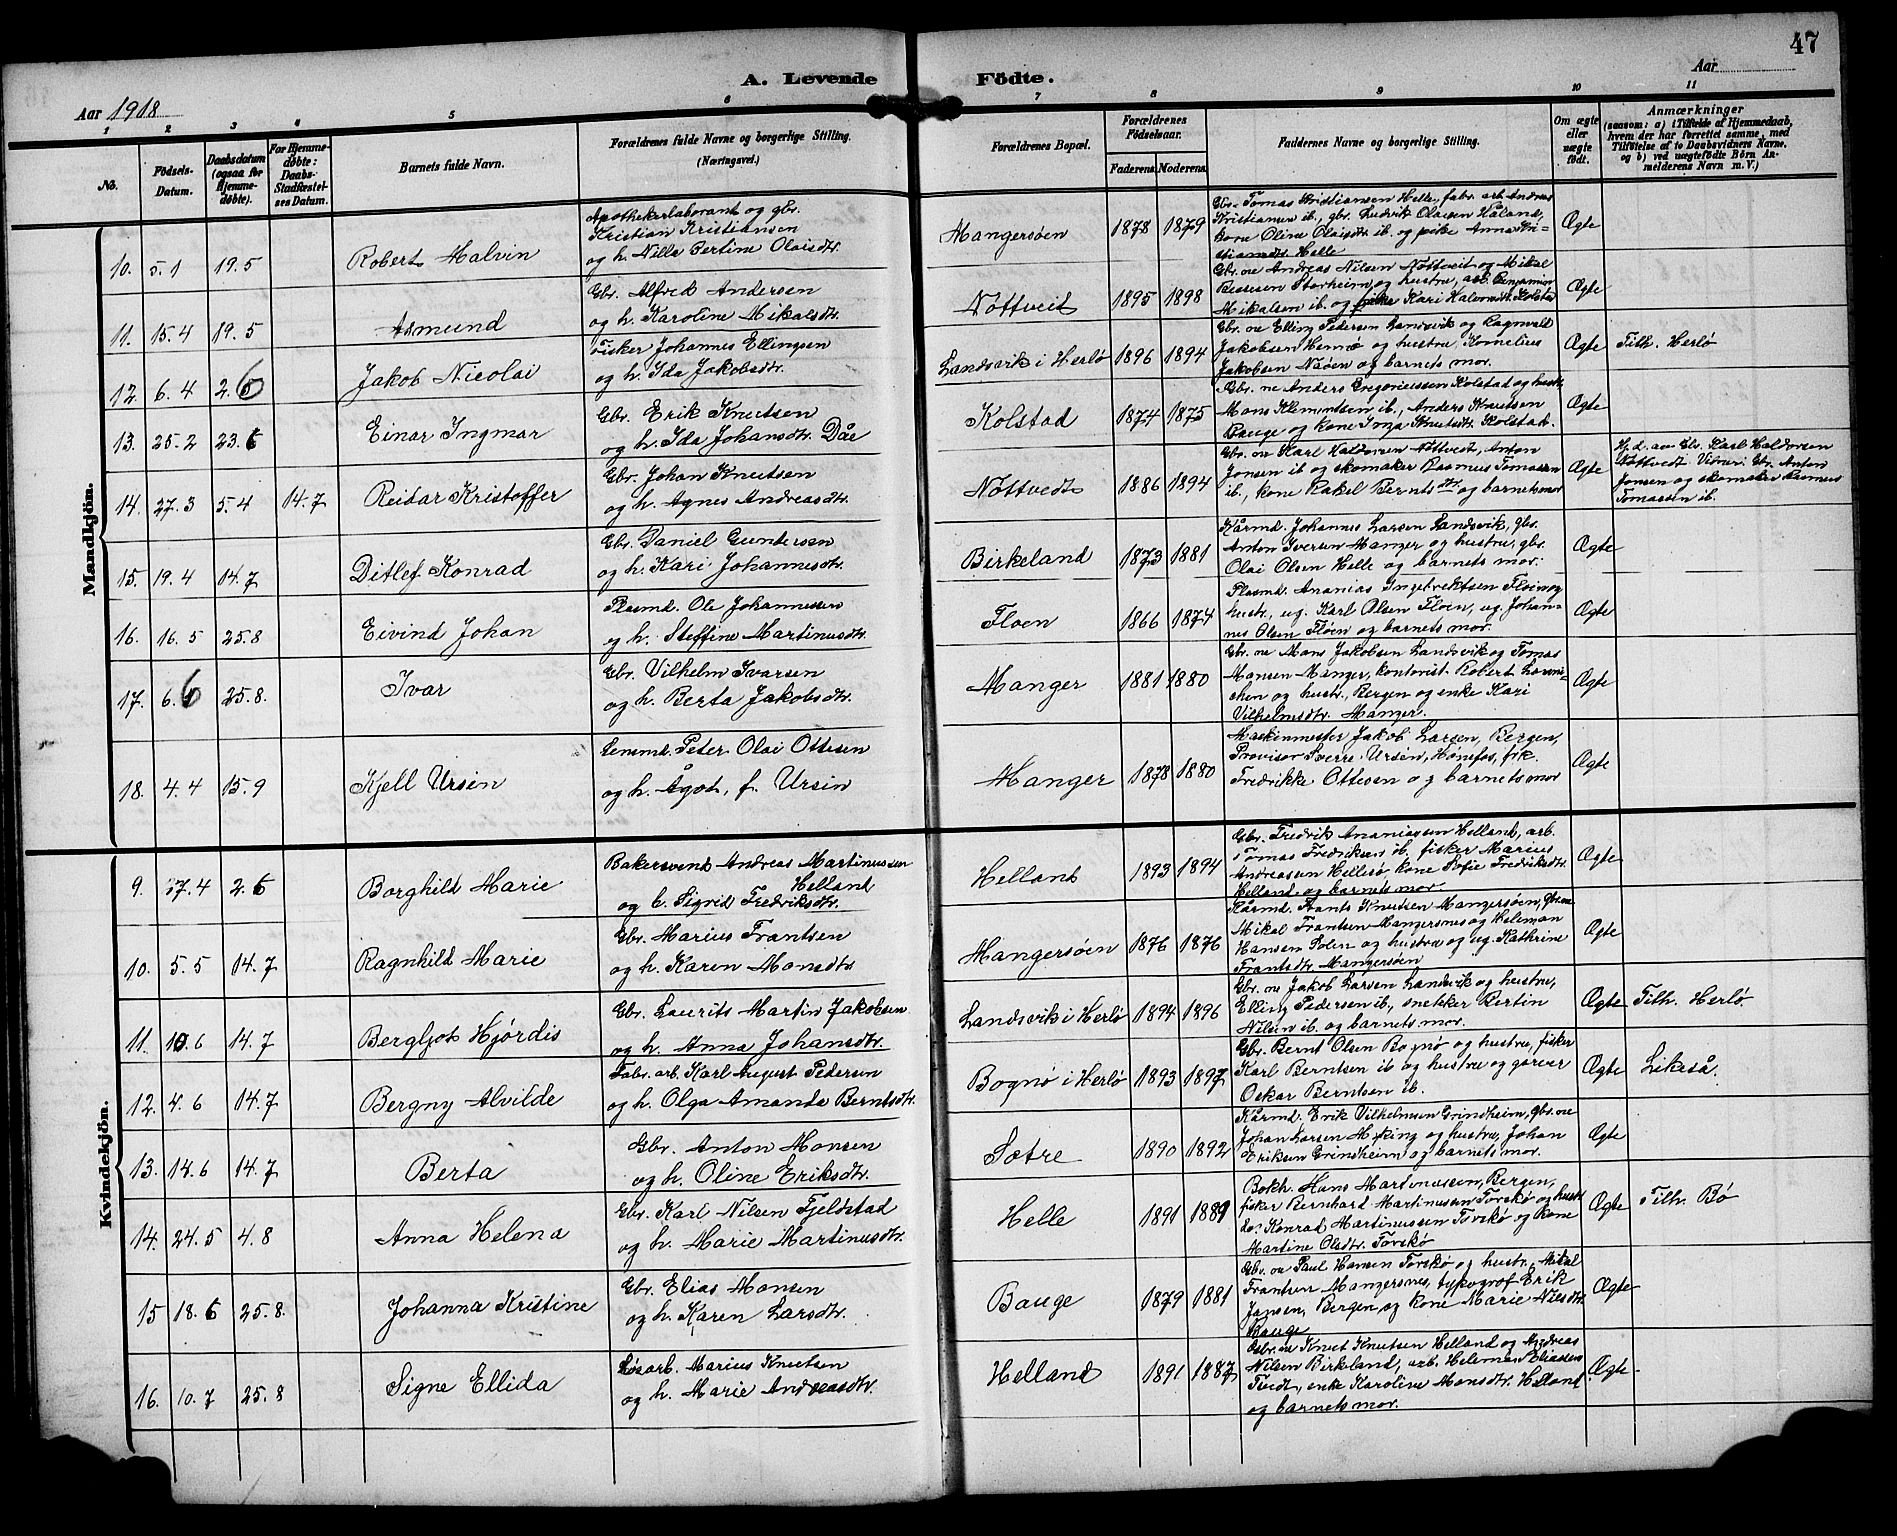 47
A. Levende Födte.
Aar 1918
Aar
1 2 3 4 5 6 7 8 9 10 11
No.
Födsels-Datum.
Daabsdatum (ogsaa for Hjemme-døbte).
For Hjemme-døbte: Daabs-Stadfæstel-ses Datum.
Barnets fulde Navn.
Forældrenes fulde Navne og borgerlige Stilling. (Næringsvei.)
Forældrenes Bopæl.
Forældrenes Födselsaar.
Faderens. Moderens.
Faddernes Navne og borgerlige Stilling.
Om ægte eller uægte födt.
Anmærkninger
(saasom: a) i Tilfælde af Hjemmedaab, hvem der har forrettet samme, med Tilföielse af to Daabsvidners Navne, og b) ved uægtefödte Börn Anmelderens Navn m. V.)
Mandkjön.
10. 5.1 19.5 Robert Malvin
Apothekerlaborant og gbr.
Kristian Kristiansen
og h. Nilla Bertine Olaisdtr.
Mangersøen 1878 1879
Gbr. Tomas Kristiansen Helle, fabr. arb. Andreas
Kristiansen ib., gbr. Ludvik Olaisen Håland,
kone Oline Olaisdtr. ib. og pike Anna Kri-
stiansdtr. Helle
Ægte
11. 15.4 19.5 Asmund
Gbr. Alfred Andersen
og h. Karoline Mikalsdtr.
Nöttveit 1895 1898
Gbr. ne Andreas Nilsen Nöttveit og Mikal
Storheim og hustru, arb. Benjamin
Mikalsen ib. og pike Kari
Ægte
12. 6.4 2.6 Jakob Nicolai
Fisker Johannes Ellingsen
og h. Ida Jakobsdtr.
Landsvik i Herlö 1896 1894
Gbr. ne Elling Pedersen Landsvik og Ragnvald
Jakobsen og hustru, Kornelius
Jakobsen Nåöen og barnets mor.
Ægte Tilh. Herlö
13. 25.2 23.6 Einar Ingmar
Gbr. Erik Knutsen
og h. Ida Johansdtr. Dåe
Kolstad 1874 1875
Gbr. ne Anders Gregoriussen Kolstad og hustr.,
Mons Klemmetsen ib., Anders Knutsen
Bauge og kone Inga Knutsdtr. Kolstad.
Ægte
14. 27.3 5.4 14.7 Reidar Kristoffer
Gbr. Johan Knutsen
og h. Agnes Andreasdtr.
Nöttvedt 1886 1894
Gbr. ne Karl Haldorsen Nöttvedt, Anton
Jonsen ib og skomaker Rasmus Tomassen
ib., kone Rakel Berntsdtr. og barnets mor
Ægte
Hj.d. av Gbr. Karl Haldorsen
Nöttvedt. Vitner: Gbr. Anton
Jonsen og skomaker Rasmus
Tomassen ib.
15. 19.4 14.7 Ditlef Konrad
Gbr. Daniel Gundersen
og h. Kari Johannesdtr.
Birkeland 1873 1881
Kårmd. Johannes Larsen Landsvik, gbr.
Anton Iversen Manger og hustru, gbr.
Olai Olsen Helle og barnets mor.
Ægte
16. 16.5 25.8 Eivind Johan
Plasmd. Ole Johannessen
og h. Steffine Martinusdtr.
Floen 1866 1874
Plasmd. Ananias Ingebrektsen Floen og
hustr., ug. Karl Olsen Floen, ug. Johan-
nes Olsen Flöen og barnets mor.
Ægte
17. 6.6 25.8. Ivar
Gbr. Vilhelm Ivarsen
og h. Berta Jakobsdtr.
Manger 1881 1880
Gbr. ne Mons Jakobsen Landsvik og Tomas
Monsen Manger, kontorist Robert
og hustr., Bergen og enke Kari
Vilhelmsdtr. Manger.
Ægte
18. 4.4 15.9 Kjell Ursin
Lensmd. Peter Olai Ottesen
og h. Ågot, f. Ursin
Manger 1878 1880
Maskinmester Jakob Larsen, Bergen,
Provisor Sverre Ursin, Hönefos, frk.
Fredrikke Ottesen og barnets mor
Ægte
Kvindekjön.
9. 27.4 2.6 Borghild Marie
Bakersvend Andreas Martinussen
Helland
og h. Sigrid Fredriksdtr.
Helland 1893 1894
Gbr. Fredrik Ananiassen Helland, arb.
Tomas Fredriksen ib, fisker Marius
Andreassen Hellesö, kone Sofie Fredriksdtr.
Helland og barnets mor
Ægte
10. 5.5 14.7 Ragnhild Marie
Gbr. Marius Frantsen
og h. Karen Monsdtr.
Mangersøen 1876 1876
Kårmd. Frants Knutsen Mangersøen, gbr. ne
Mikal Frantsen Mangersnes og Heleman
Hansen Solen og hustru og ug. Kathrine
Frantsdtr. Mangersøen
Ægte
11. 10.6 14.7 Bergljot Hjördis
Gbr. Laurits Martin Jakobsen
og h. Anna Johansdtr.
Landsvik i Herlö 1894 1896
Gbr. ne Jakob Larsen Landsvik og hustru,
Elling Pedersen ib., snekker Bertin
Nilsen ib. og barnets mor.
Ægte Tilh. Herlö
12. 4.6 14.7 Bergny Alvilde
Fabr. arb. Karl August Pedersen
og h. Olga Amanda Berntsdtr.
Bognö i Herlö 1893 1897
Gbr. Bernt Olsen Bognö og hustru, fisker
Karl Berntsen ib og hustru og garver
Oskar Berntsen ib.
Ægte Likeså.
13. 14.6 14.7 Berta
Gbr. Anton Monsen
og h. Oline Eriksdtr.
Sætre 1890 1892
Kårmd. Erik Vilhelmsen Grindheim, gbr. ne
Johan Larsen Mjiking og hustru, Johan
Eriksen Grindheim og barnets mor.
Ægte
14. 24.5 4.8 Anna Helena
Gbr. Karl Nilsen Fjeldstad
og h. Marie Martinusdtr.
Helle 1891 1889
Bokh. Hans Martinussen, Bergen,
fisker Bernhard Martinussen Torskö og hustr.
do. Konrad Martinussen Torskö og kone
Martine Olsdtr. Torskö
Ægte Tilh. Bö
15 18.6 25.8. Johanna Kristine
Gbr. Elias Monsen
og h. Karen Larsdtr.
Bauge 1879 1881
Gbr. ne Paul Hansen Torskö og hustr., Mikal
Frantsen Mangersnes, typograf Erik
Jansen, Bergen og kone Marie Nilsdtr.
Bauge
Ægte
16. 10.7 25.8 Signe Ellida
Løsarb. Marius Knutsen
og h. Marie Andreasdtr.
Helland 1891 1887
Gbr. ne Knut Knutsen Helland og Andreas
Nilsen Birkeland, arb. Heleman Eliassen
Tudt, enke Karoline Monsdtr. Helland
og barnets mor.
Ægte